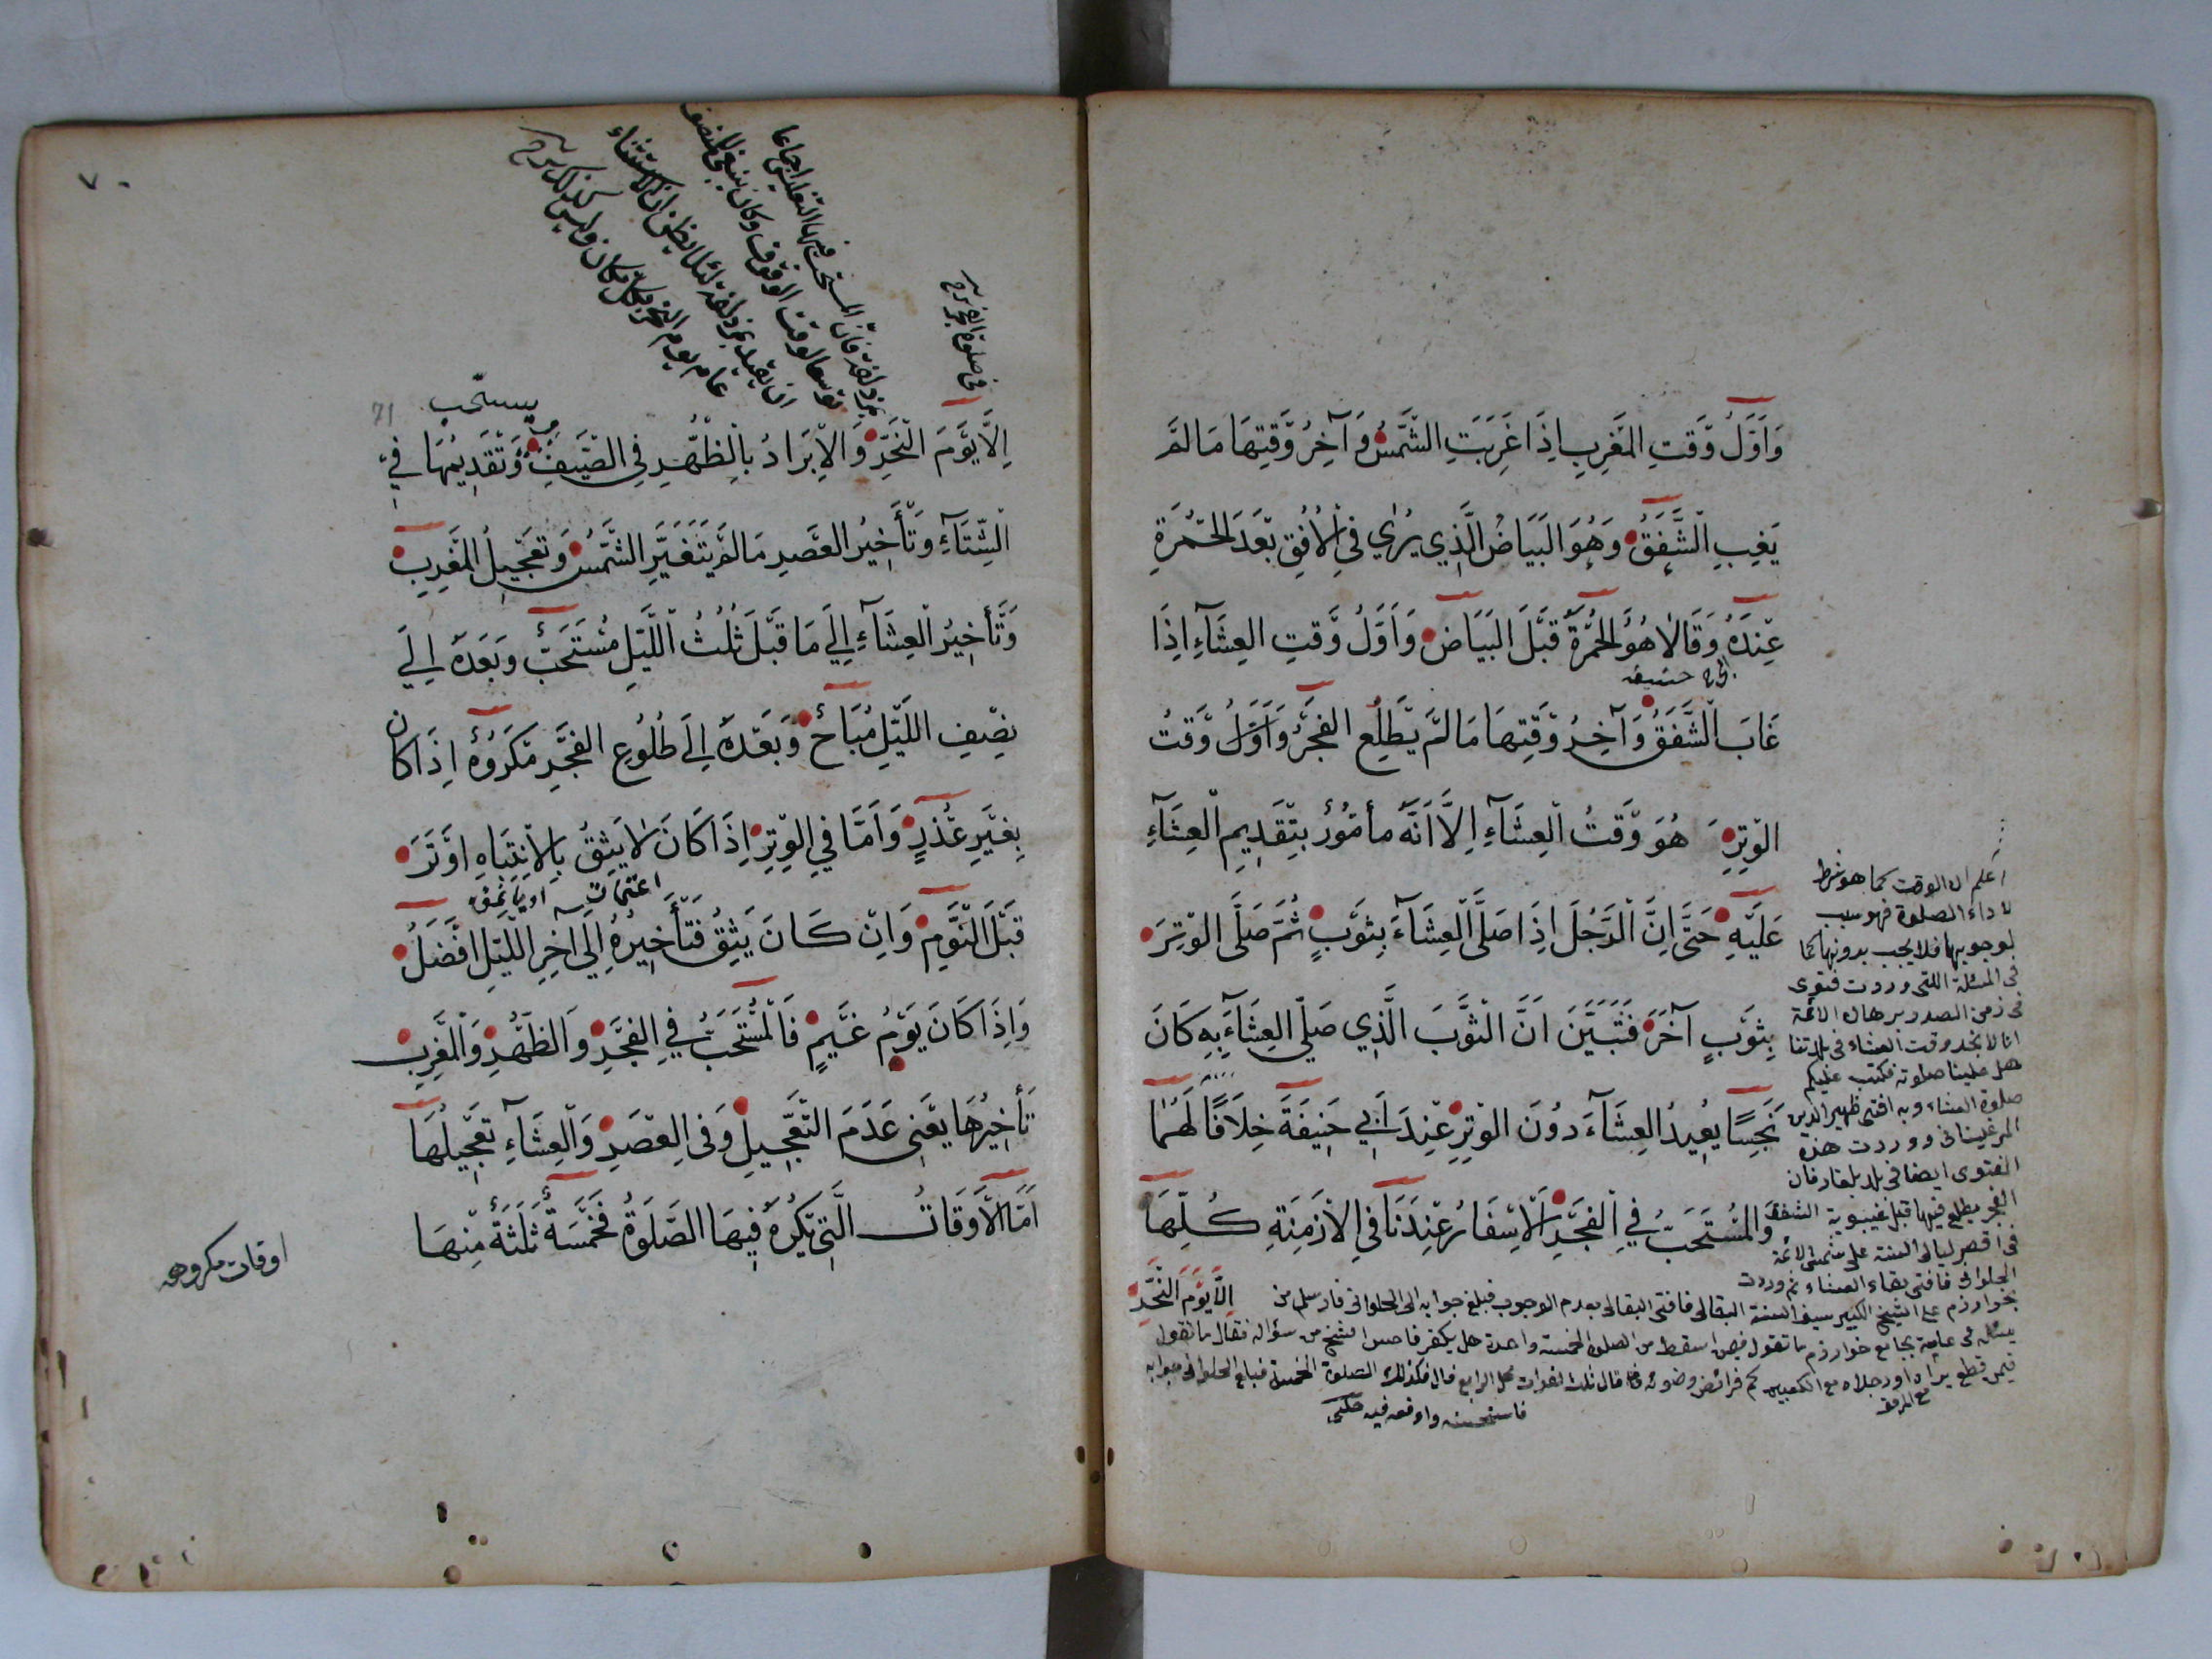 وَاَوَّلُ وَقْتِ المَغْرِبِ اِذَا غَرَبَتِ الشَّمْسُ وَآخِرُ وَقْتِهَا مَا لَمْ
يَغِبِ الشَّفَقُ وَهُوَ البَيَاضُ الَّذِي يُرٰي فِي الْاُفُقِ بَعْدَ الحُمْرَةِ
عِنْدَهُ وَقَالَا هُوَ الحُمْرَةُ قَبْلَ البَيَاضِ وَاَوَّلُ وَقْتِ العِشَآءِ اِذَا
غَابَ الشَّفَقُ وَآخِرُ وَقْتِهَا مَا لَمْ يَطْلُعِ الفَجْرُ وَاَوَّلُ وَقْتُ
الوِتْرِ هُوَ وَقْتُ العِشَآءِ اِلَّا اَنَّهُ مأمُوُرٌ بِتَقْدِيمِ العِشَآءِ
عَلَيْهِ حَتَّى اِنَّ الرَّجُلَ اِذَا صَلَّى العِشَآءَ بِثَوْبٍ ثُمَّ صَلَّى الوِتْرَ
بِثَوْبٍ آخَرَ فَتَبَيَّنَ اَنَّ الثَّوْبَ الَّذِي صَلّٰي العِشَآءَ بِهِ كَانَ
نَجِسًا يُعِيدُ العِشَآءَ دُونَ الوِتْرِ عِنْدَ اَبِي حَنِيفَةَ خِلَافًا لَهُمَا
وَالمُسْتَحَبُّ فِي الفَجْرِ الْاِسْفَارُ عِنْدَنَا فِي الْاَزْمِنَةِ كُلِّهَا
اِلَّا يَوْمَ النَّحْرِ
اعلم ان الوقت كما هو شرط
لاداء الصلوة فهو سبب
لوجوبها فلا يجب بدونها كما
فى المسئلة اللتى وردت فتوى
فى زمن الصدر برهان الائمة
انا لا نجد وقت العشاء فى بلدتنا
هل علينا صلوته فكتب عليكم
صلوة العشاء وبه افتى ظهير الدين
المرغينانى ووردت هذه
الفتوى ايضا فى بلد بلغار فان
الفجر يطلع فيها قبل غيبوبة الشفق
فى اقصر ليالى السنة على شمس الائمة
الحلوانى فافتى بقضاء العشاء ثم وردت
بخوارزم على الشيخ الكبير سيف السنة البقالى فافتى البقالى بعدم الوجوب فبلغ جوابه الى الحلوانى فارسل من
يسئله فى عامة بجامع خوارزم ما تقول فيمن اسقط من الصلوة الخمسة واحدة هل يكفر فاحس الشيخ من سؤاله فقال ما تقول
فيمن قطع يداه او رجلاه مع الكعبين كم فرائض وضوئه فقال ثلث لفوات محل الرابع قال فكذلك الصلوة الخمسة فبلغ الحلوانى جوابه
مع المرفق
فاستحسنه ووافقه فيه حلبى
٧٠
71
فى صلوة الفجر
بمزدلفة فان المستحب فيها التغليس اجماعا
عام يوم النحر
يستحب
اِلَّا يَوْمَ النَّحْرِ وَالْاِبْرَادُ بِالظُّهْرِ فِي الصَّيْفِ وَتَقْدِيمُهَا فِي
الشِّتَآءِ وَتَأْخِيرُ العَصْرِ مَا لَمْ يَتَغَيَّرِ الشَّمْسُ وَتَعْجِيلُ المَغْرِبِ
وَتَأخِيرُ العِشَآءِ اِلٰي مَا قَبْلَ ثُلُثُ اللَّيْلِ مُسْتَحَبٌّ وَبَعْدَهُ اِلٰي
نِصْفِ اللَّيْلِ مُبَاحٌ وَبَعْدَهُ اِلَي طُلُوعِ الفَجْرِ مَكْرُوهٌ اِذَا كَانَ
بِغَيْرِ عُذْرٍ وَاَمَّا فِي الوِتْرِ اِذَا كَانَ لَا يَثِقُ بِالْاِنْتِبَاهِ اَوْتَرَ
قَبْلَ النَّوْمِ وَاِنْ كَانَ يَثِقُ فَتَأْخِيرُهُ اِلَي آخِرِ اللَّيْلِ افْضَلُ
وَاِذَا كَانَ يَوْمُ غَيْمٍ فَالمُسْتَحَبُّ فِي الفَجْرِ وَالظُّهْرِ وَالمَغْرِبِ
تَأخِيرُهَا يَعْنِي عَدَمَ التَّعْجِيلِ وَفِي العَصْرِ وَالعِشَآءِ تَعْجِيلُهَا
اَمَّا الْاَوْقَاتُ الَّتِي تُكْرَهُ فِيهَا الصَّلَوةُ فَخَمْسَةٌ ثَلٰثَةٌ مِنْهَا
اوقات مكروهه